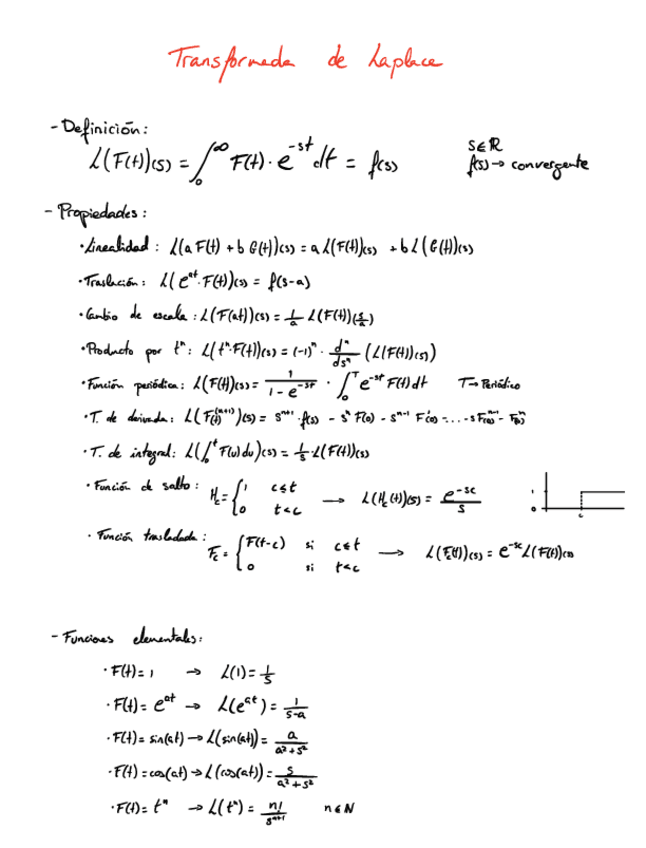 Transformada de Laplace
- Definición:
L(F(t))(s) = ∫₀^∞ F(t) · e^{-st} dt = f(s)
s∈ℝ
f(s) → convergente
- Propiedades:
· Linealidad: L(a F(t) + b G(t))(s) = a L(F(t))(s) + b L(G(t))(s)
· Traslación: L(e^{at} · F(t))(s) = f(s-a)
· Cambio de escala: L(F(at))(s) = 1/a L(F(t))(s/a)
· Producto por tⁿ: L(tⁿ·F(t))(s) = (-1)ⁿ · dⁿ/dsⁿ (L(F(t))(s))
· Función periódica: L(F(t))(s) = 1/(1-e^{-sT}) · ∫₀^T e^{-st} F(t) dt T → Periódico
· T. de derivada: L(F(t)^{(n+1)})(s) = s^{n+1} · f(s) - sⁿ F(0) - s^{n-1} F'(0) - ... - s F(0)^{n-1} - F(0)ⁿ
· T. de integral: L(∫₀^t F(u) du)(s) = 1/s · L(F(t))(s)
· Función de salto: H_c = { 1 c≤t
0 t<c → L(H_c(t))(s) = e^{-sc}/s
1
0
c
· Función trasladada: F_c = { F(t-c) si c≤t
0 si t<c → L(F_c(t))(s) = e^{-sc} L(F(t))(s)
- Funciones elementales:
· F(t) = 1 → L(1) = 1/s
· F(t) = e^{at} → L(e^{at}) = 1/(s-a)
· F(t) = sin(at) → L(sin(at)) = a/(a²+s²)
· F(t) = cos(at) → L(cos(at)) = s/(a²+s²)
· F(t) = tⁿ → L(tⁿ) = n!/s^{n+1} n∈N